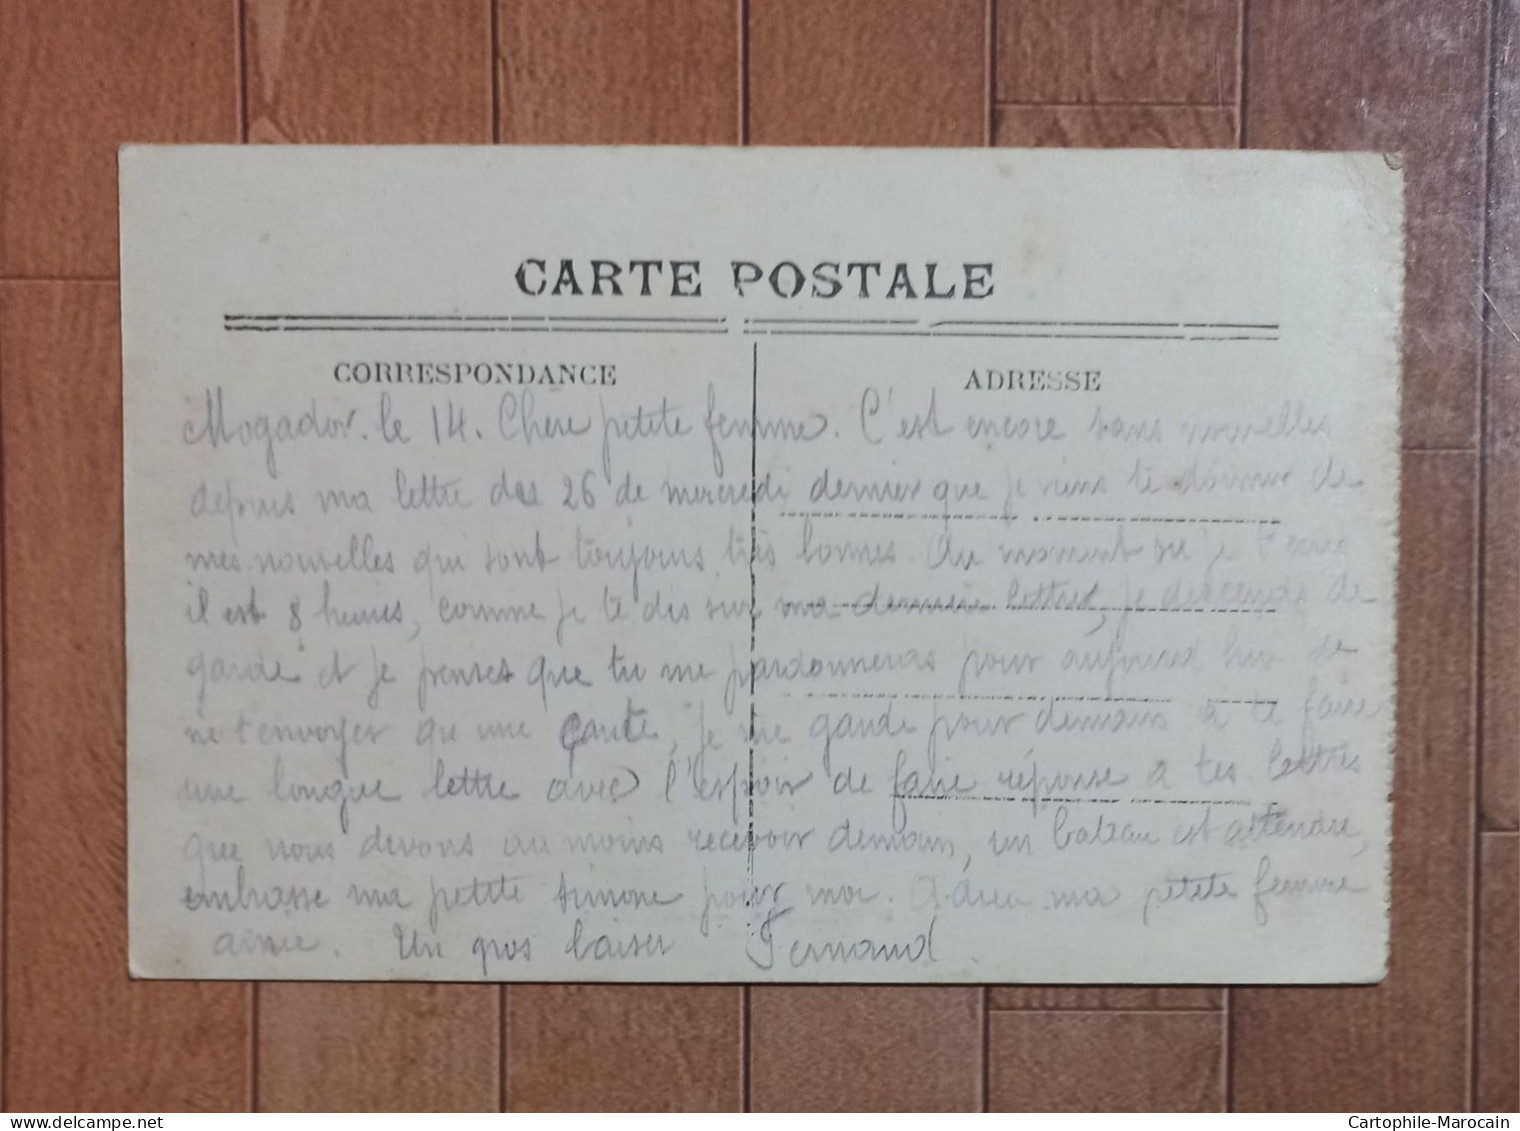 CARTE POSTALE
CORRESPONDANCE
ADRESSE
Mogador. le 14. Chère petite femme. C'est encore sans nouvelles
depuis ma lettre des 26 de mercredi dernier que je viens te donner de
mes nouvelles qui sont toujours très bonnes. Au moment ou je t'écris
il est 8 heures, comme je te dis sur ma dernière lettres, je descends de
garde et je penses que tu me pardonneras pour aujourd hui de
ne t'envoyer qu une carte, je me garde pour demain a te faire
une longue lettre avec l'espoir de faire réponse a tes lettres
que nous devons au moins recevoir demain, un bateau est attendre,
embrasse ma petite simone pour moi. Adieu ma petite femme
aimée. Un gros baiser Fernand
delcampe.net
Cartophile-Marocain